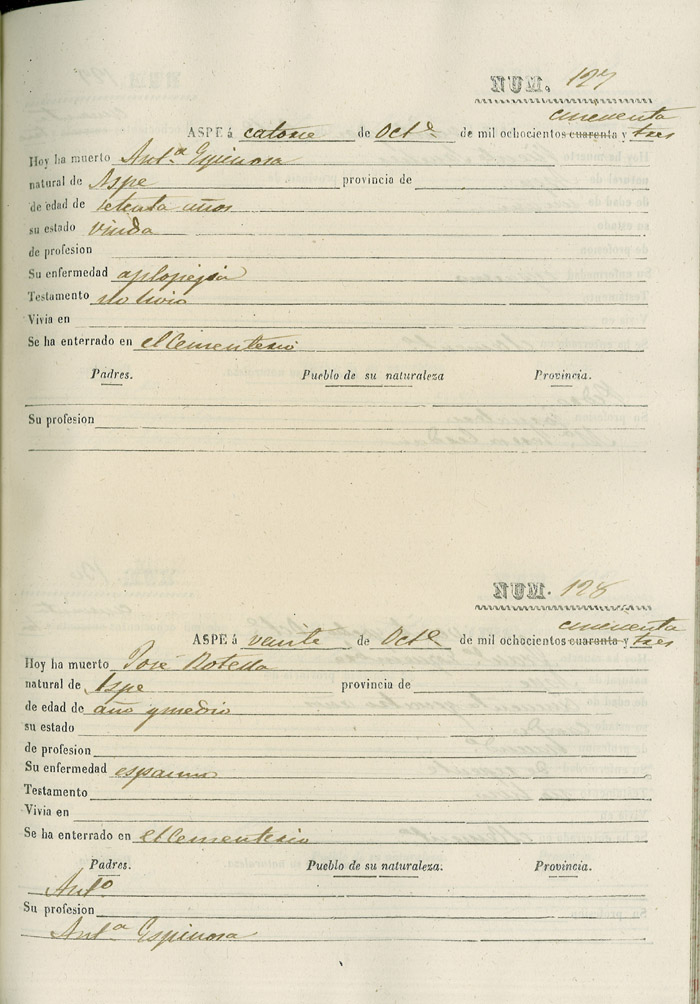 NUM. 127
cincuenta
ASPE á catorse de Oct.e de mil ochocientos cuarenta y tres
Hoy ha muerto Ant.a Espinosa
natural de Aspe provincia de
de edad de setenta años
su estado viuda
de profesion
Su enfermedad aplopejia
Testamento no hiso
Vivia en
Se ha enterrado en el Cementerio
Padres. Pueblo de su naturaleza Provincia.
Su profesion
NUM. 128
cincuenta
ASPE á veinte de Oct.e de mil ochocientos cuaranta y tres
Hoy ha muerto José Botella
natural de Aspe provincia de
de edad de año y medio
su estado
de profesion
Su enfermedad espasmo
Testamento
Vivia en
Se ha enterrado en el Cementerio
Padres. Pueblo de su naturaleza. Provincia.
Ant.o
Su profesion
Ant.a Espinosa